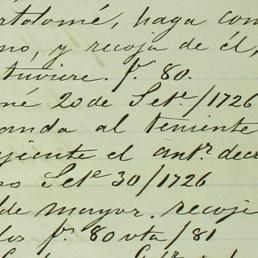 rtolomé, haga com
no, y recoja de él,
tuviere. f. 80.
mé 20 de Set.e/1726
anda al teniente
ejecute el ant.r decr
no Set.e 30/1726
lde mayor. recoje
los f.s 80 vta/81